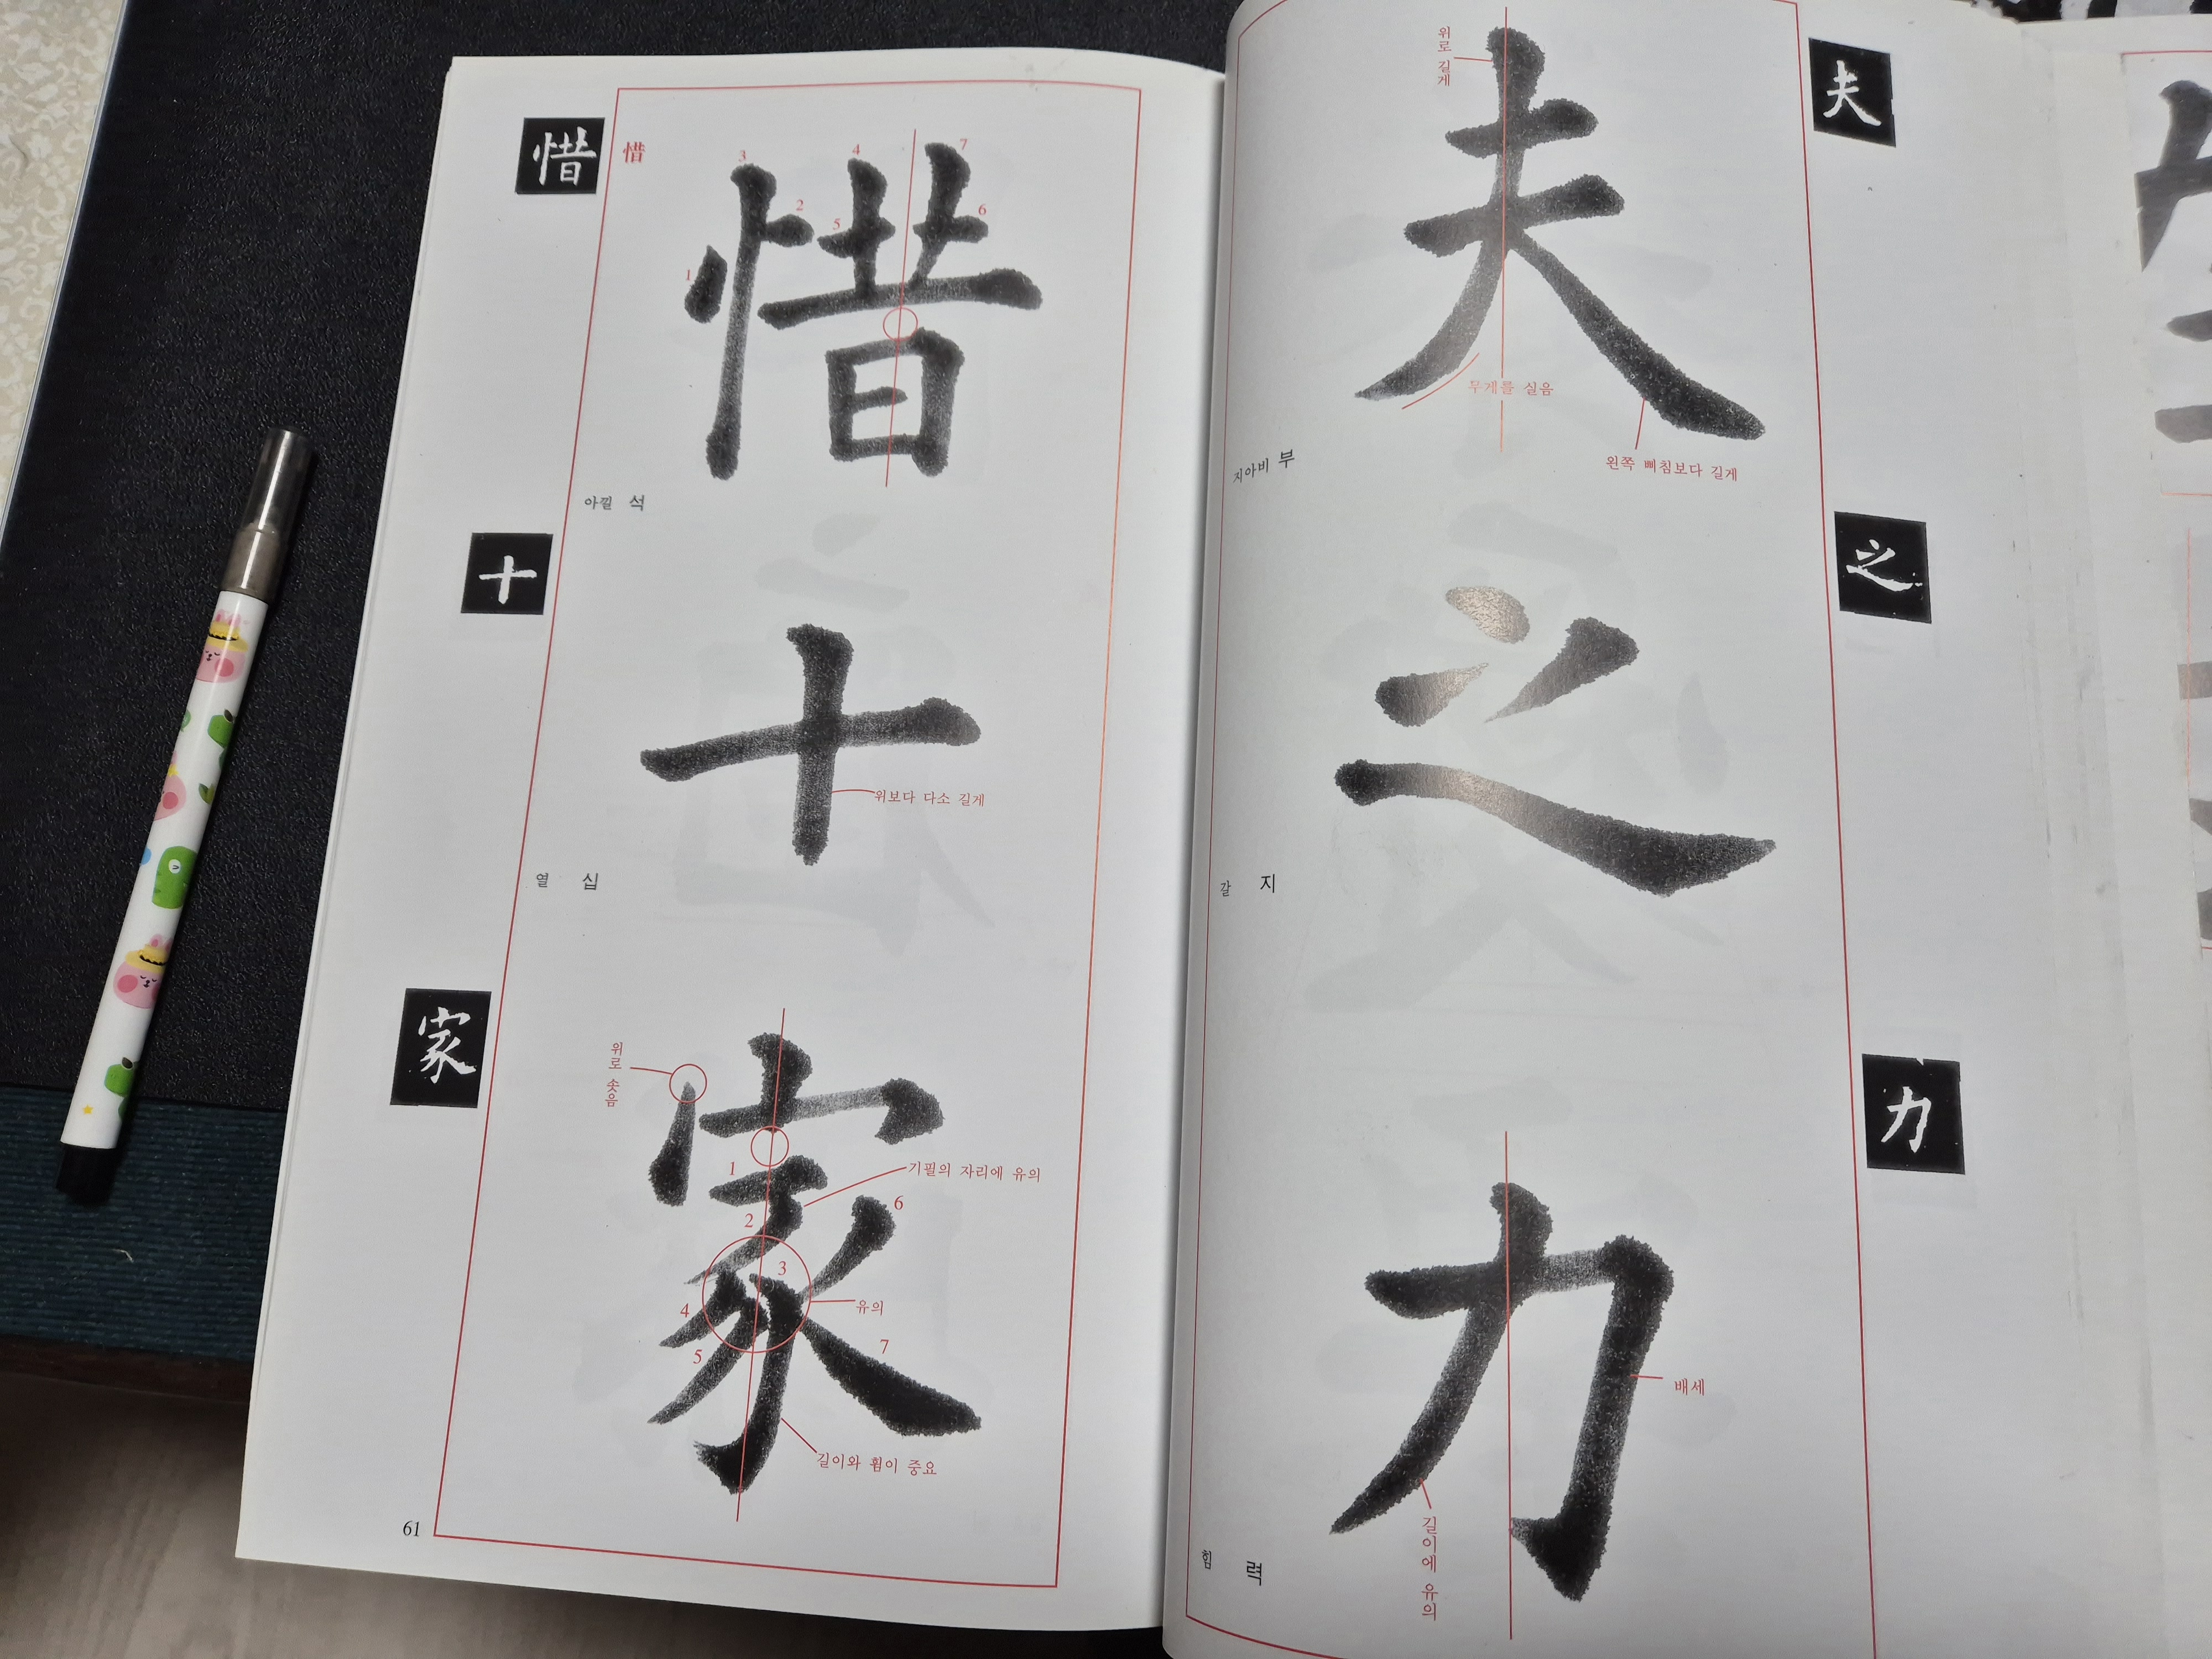 夫
夫
위로 길게
무게를 실음
왼쪽 삐침보다 길게
지아비 부
之
之
갈 지
力
力
배세
길이에 유의
힘 력
惜
惜
惜
1
2
3
4
5
6
7
아낄 석
十
十
위보다 다소 길게
열 십
家
家
위로 솟음
기필의 자리에 유의
유의
길이와 휨이 중요
1
2
3
4
5
6
7
61